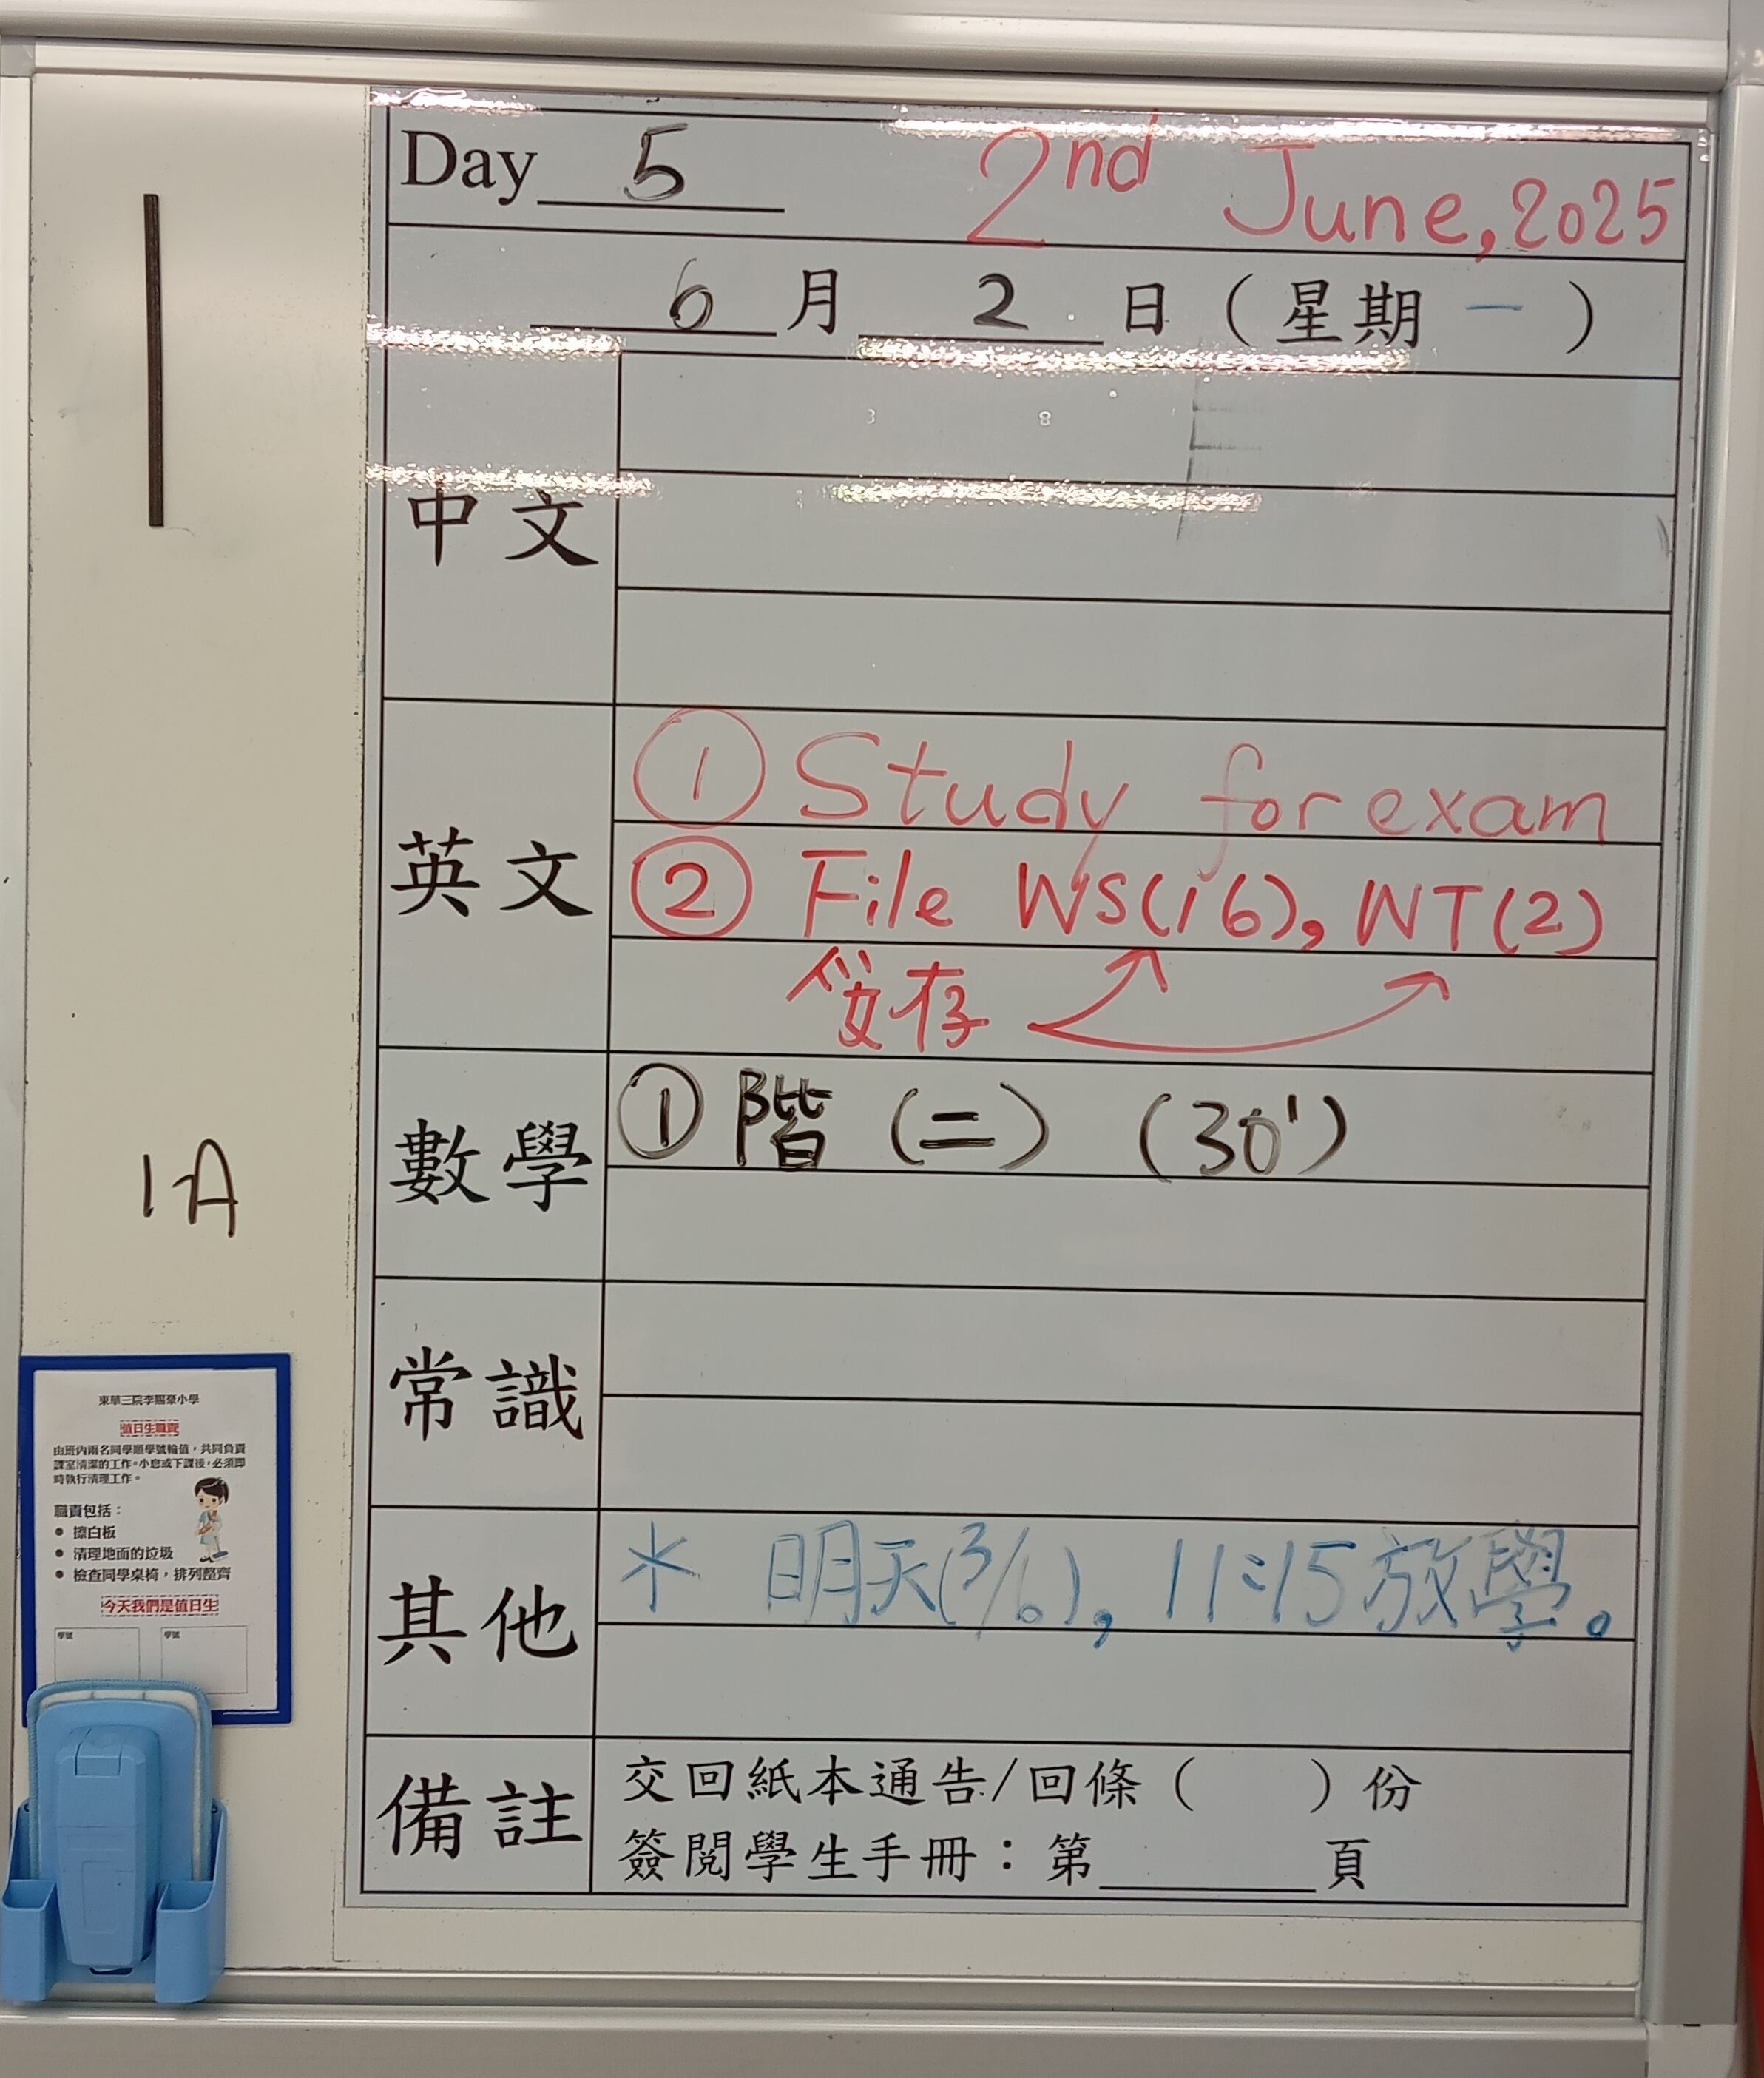 Day 5 2nd June, 2025
6 月 2 日（星期一）
中文
英文
① Study for exam
② File WS(16), WT(2)
存
數學
① 階 (二) (30')
1A
常識
其他
* 明天(3/6), 11:15放學。
備註
交回紙本通告/回條（ ）份
簽閱學生手冊：第 頁
東華三院李賜豪小學
值日生職責
由班內兩名同學順學號輪值，共同負責
課室清潔的工作。小息或下課後，必須即
時執行清理工作。
職責包括：
• 擦白板
• 清理地面的垃圾
• 檢查同學桌椅，排列整齊
今天我們是值日生
學號 學號